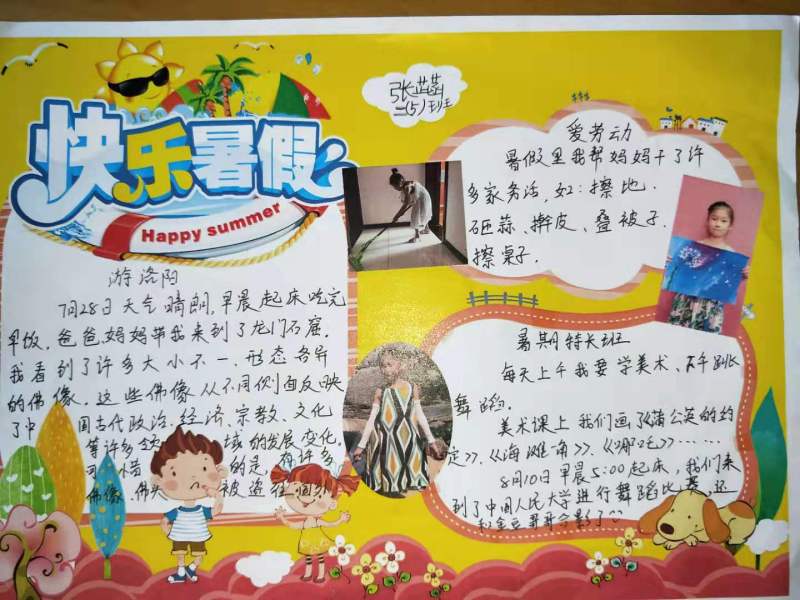 快乐暑假
Happy summer
游洛阳
7月28日天气晴朗,早晨起床吃完
早饭,爸爸妈妈带我来到了龙门石窟。
我看到了许多大小不一、形态各异
的佛像。这些佛像从不同侧面反映
了中国古代政治、经济、宗教、文化
等许多 域的发展变化。
可惜的是 有许多
佛像、佛头 被盗往国外
张
二(5)班
爱劳动
暑假里我帮妈妈干了许
多家务活,如:擦地.
砸蒜、擀皮、叠被子.
擦桌子.
暑期特长班
每天上午我要学美术、下午跳
舞蹈.
美术课上我们画了《蒲公英的约
定》、《海滩一角》、《哪吒》……
8月10日早晨5:00起床,我们来
到了中国人民大学进行舞蹈比赛,还
和金豆哥哥合影了